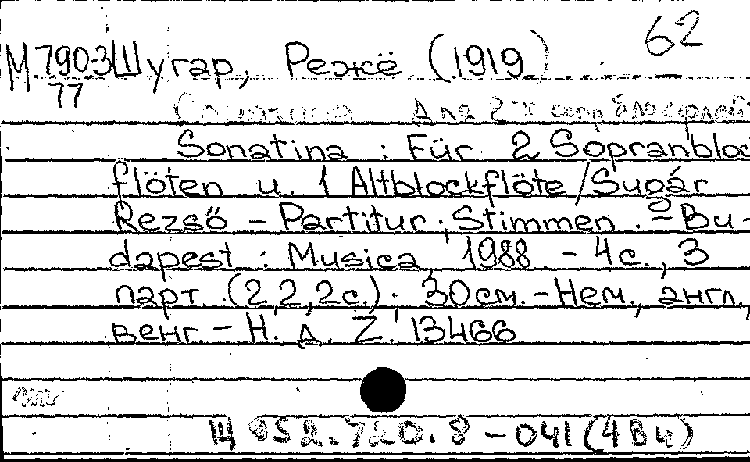 62
М 790-3 Шугар, Режё (1919)
77
Сонатина Для 2-х
Sonatina : Für 2 Sopranbloc
flöten u. 1 Altblockflöte / Sugár
Rezső – Partitur; Stimmen. – Bu-
dapest : Musica, 1988 – 4 с., 3
парт. (2,2,2с.). 30 см. – Нем., англ,
венг. – Н. д. Z. 13466
14 852.720.8 – 041 (4Ви)